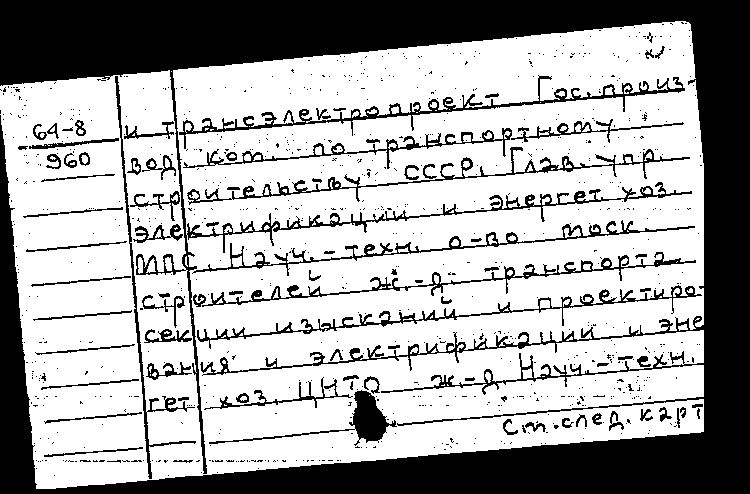 64-8
960
и трансэлектропроект Гос. произ-
вод. ком. по транспортному
строительству СССР. Глав. упр.
электрификации и энергет. хоз.
МПС. Науч.-техн. о-во моск.
строителей ж.-д. транспорта
секции изысканий и проектиро-
вания и электрификации и эне
гет хоз. ЦНТО ж.-д. Науч.-техн.
См. след. карт